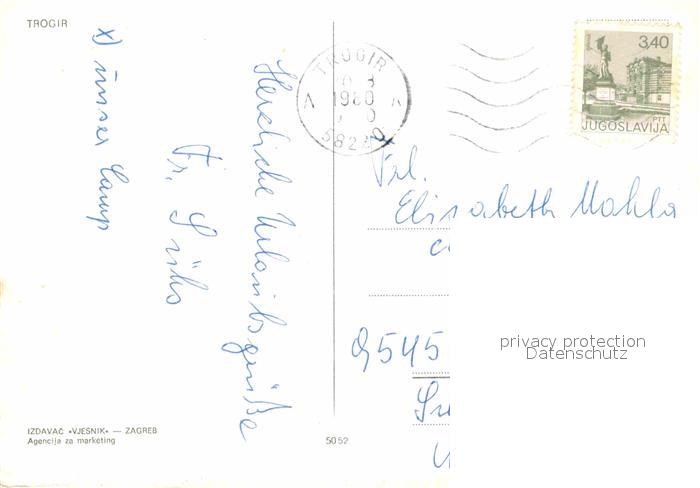 TROGIR
x) unser Camp
Herzliche Urlaubsgrüße
Fr.
TROGIR
1980
582
3,40
PTT
JUGOSLAVIJA
Frl.
Elisabeth Mahla
9545
privacy protection
Datenschutz
IZDAVAČ «VJESNIK» — ZAGREB
Agencija za marketing
5052